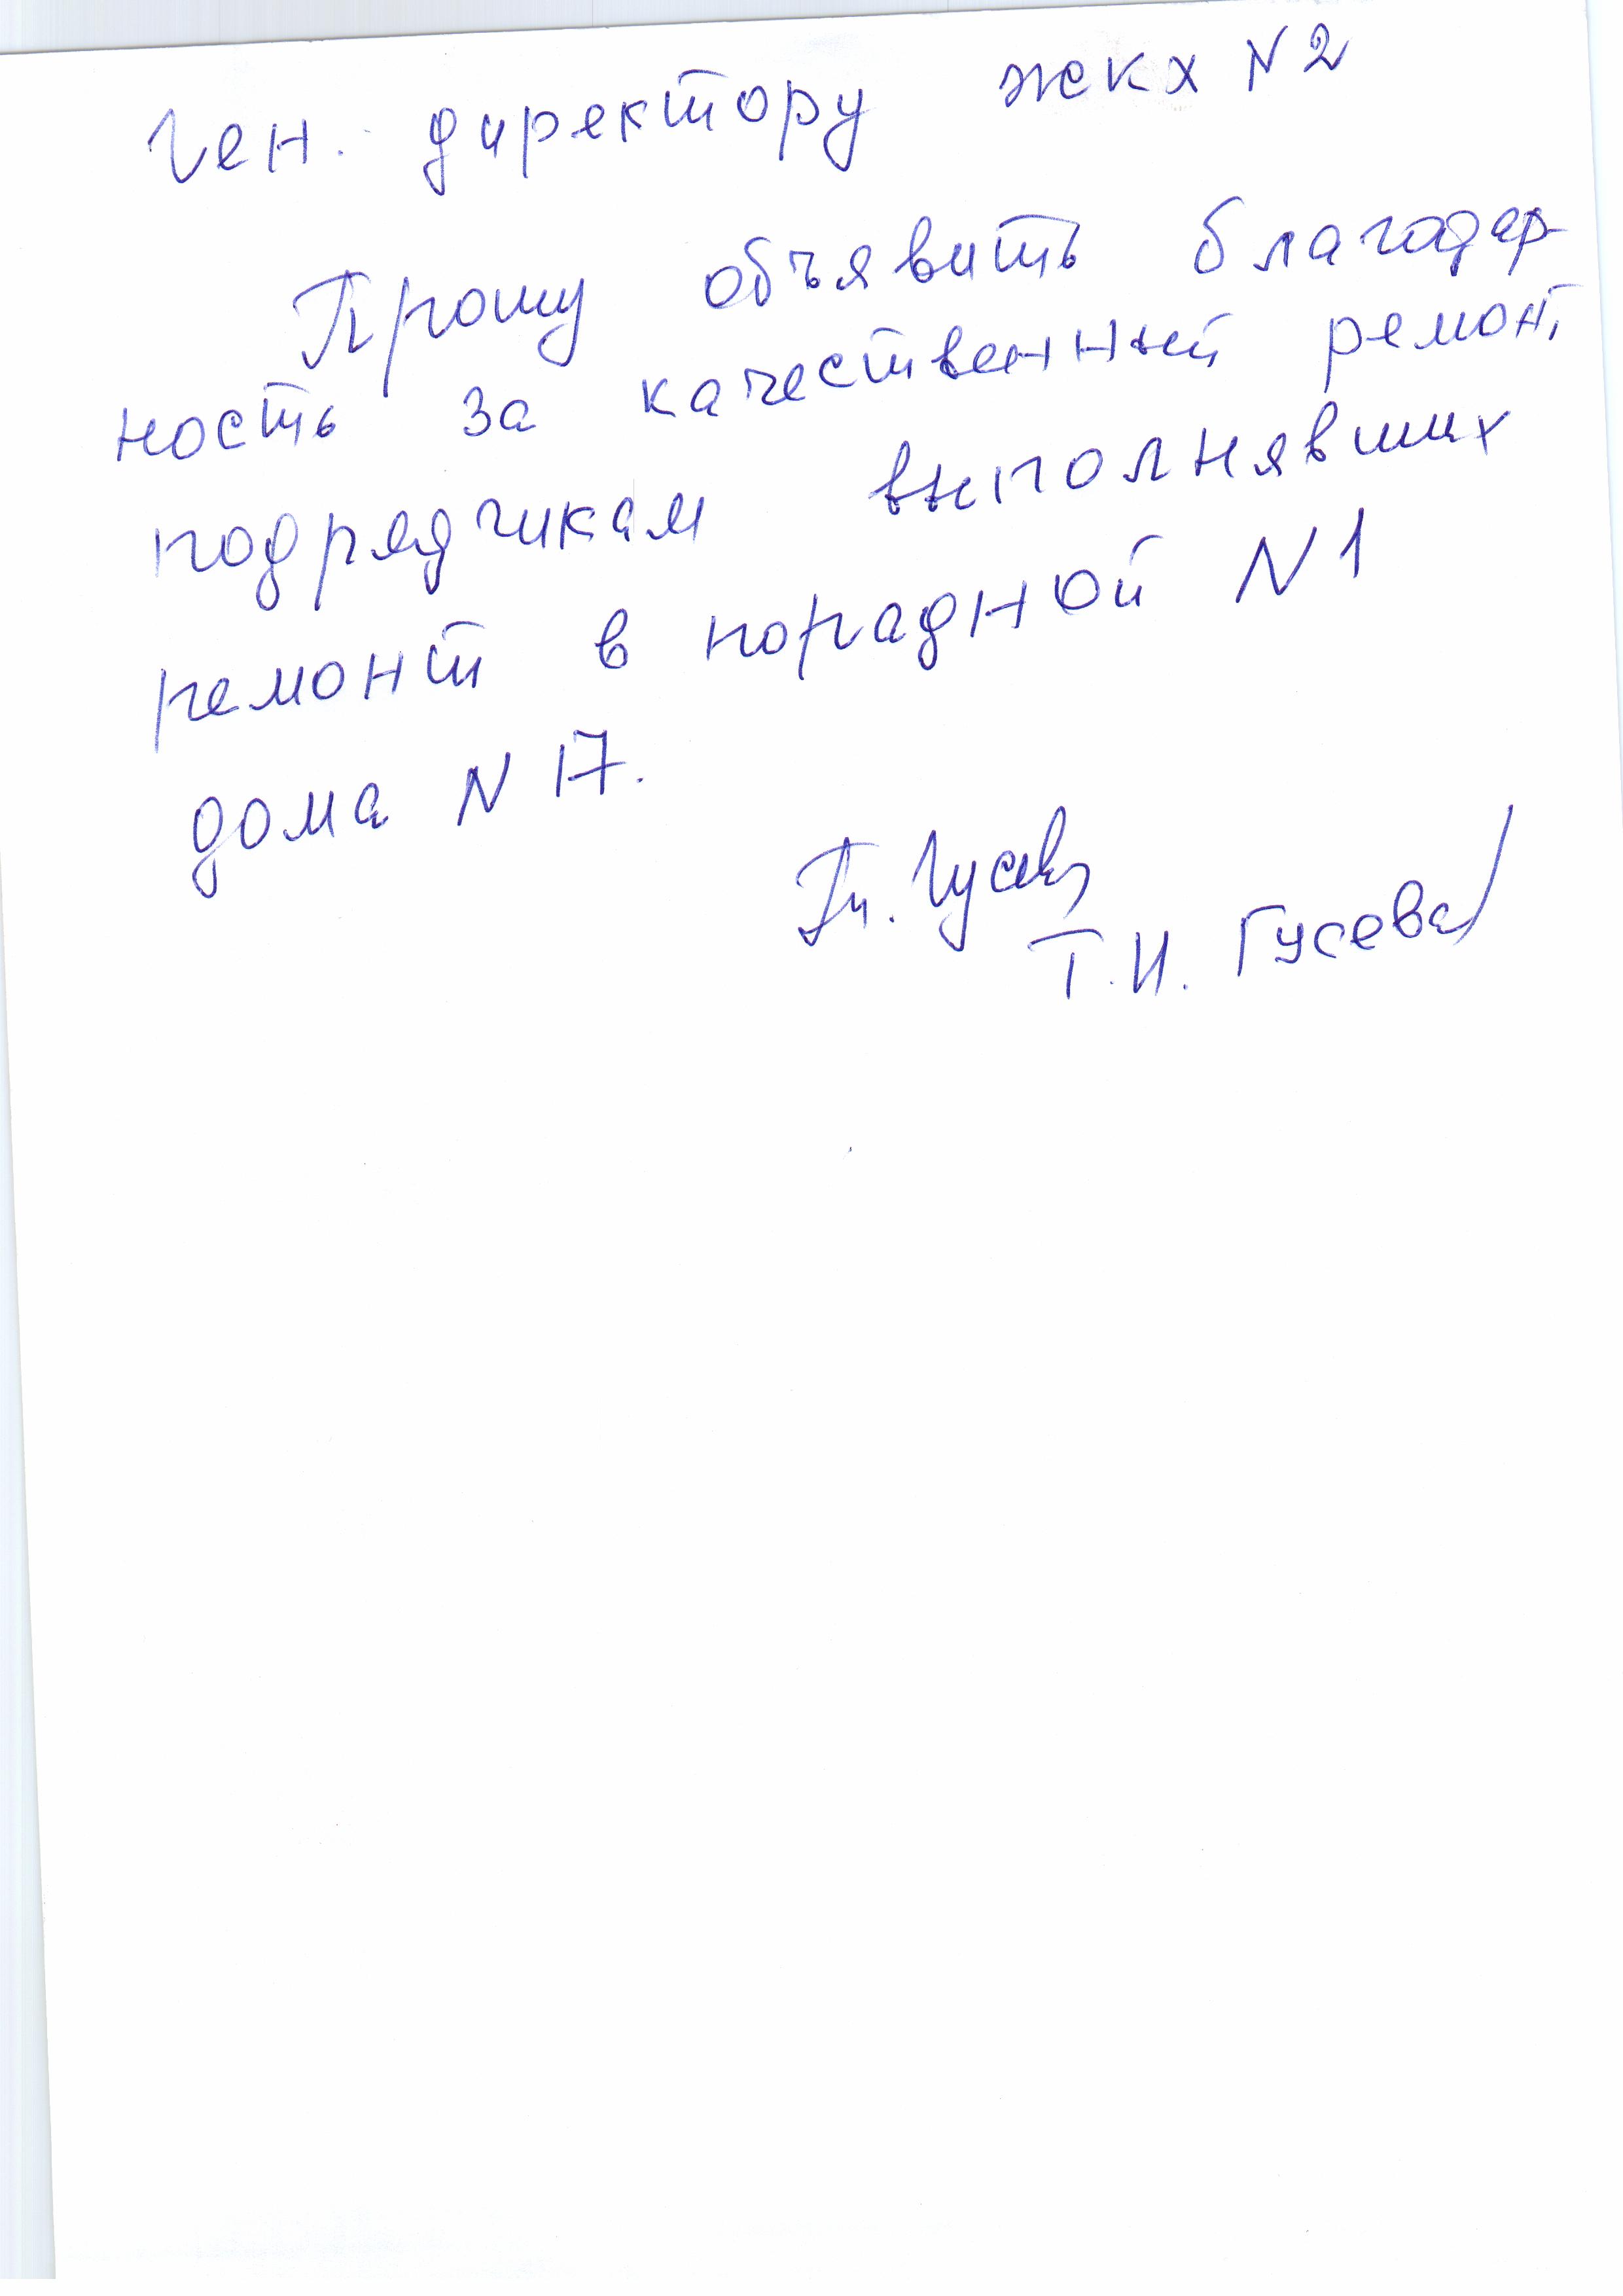 Ген. директору жкх N 2
Прошу объявить благодар-
ность за качественный ремонт
подрядчикам выполнявших
ремонт в порадной N 1
дома N 17.
Гусев
Т.И. Гусева